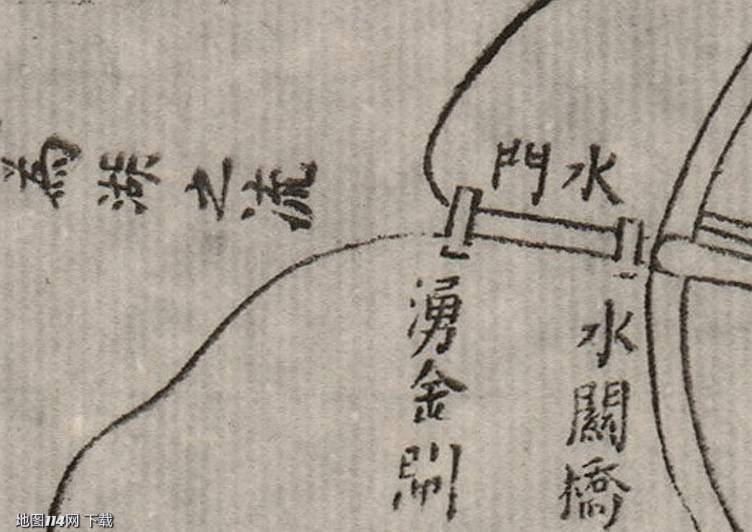 水門
為湖之流
湧金閘
水關橋
地图114网 下载